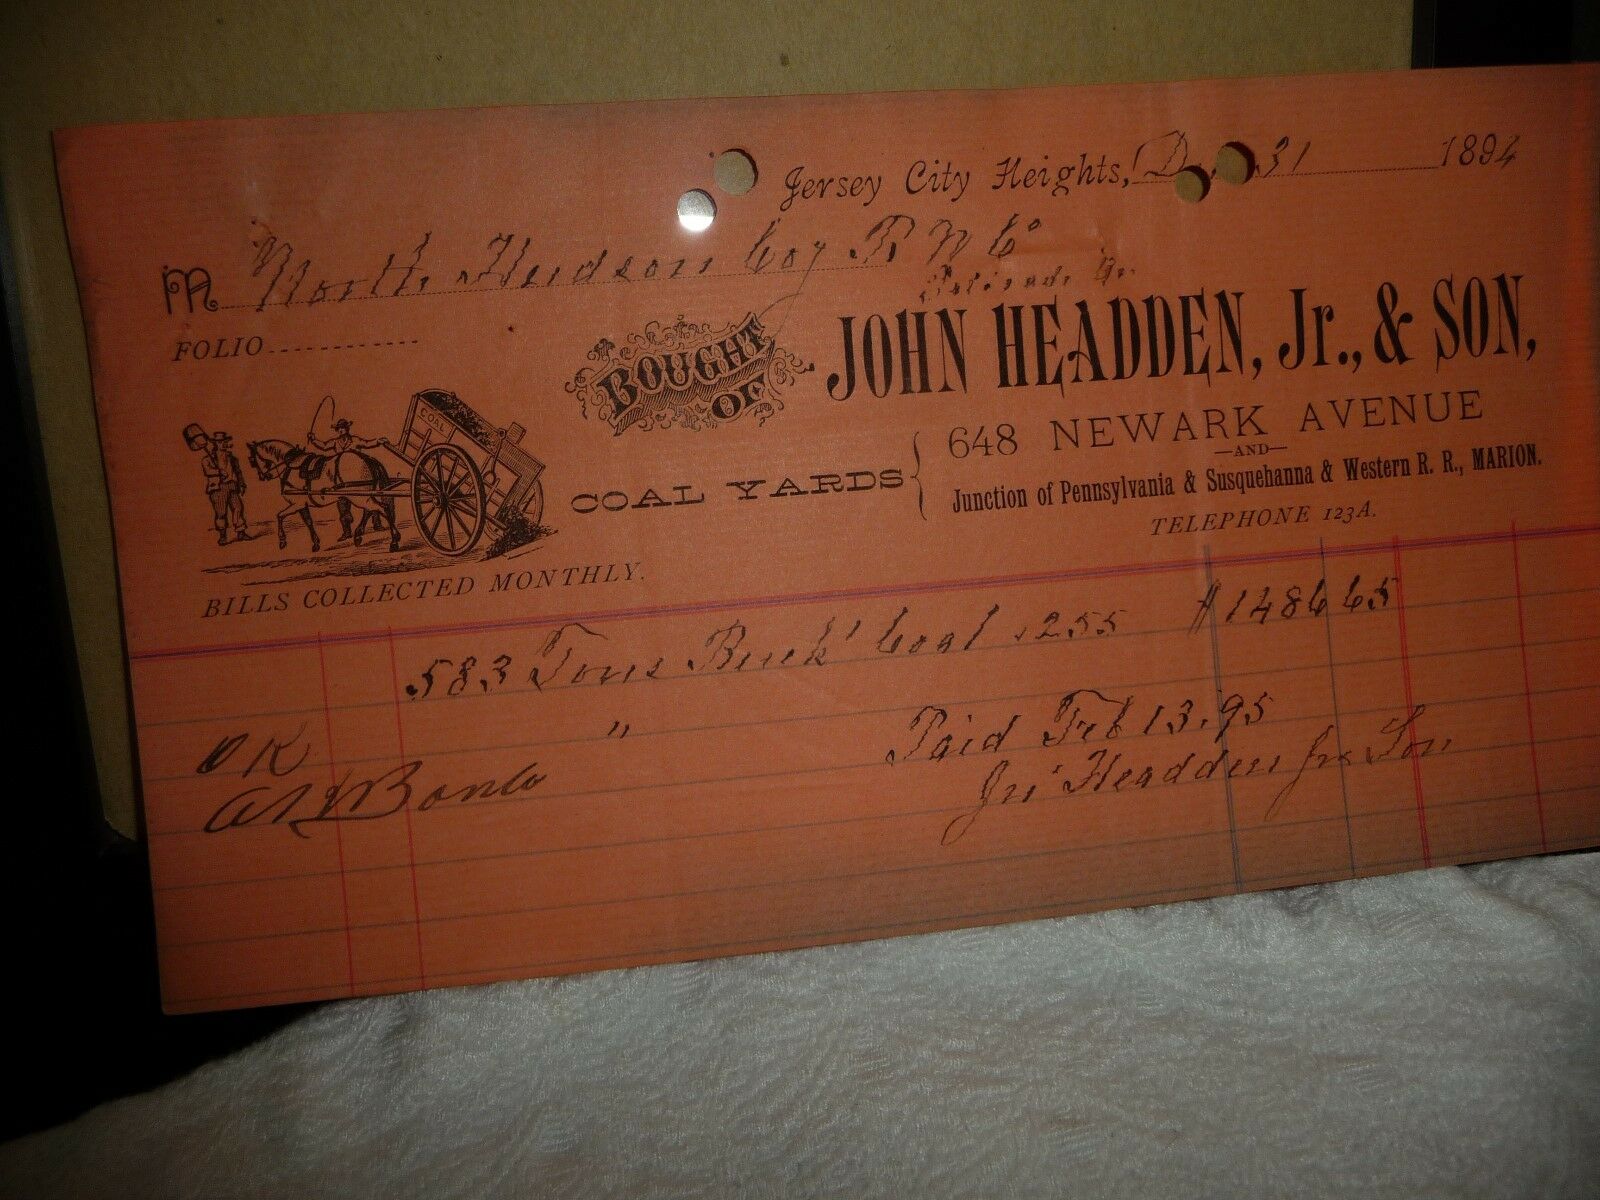 Jersey City Heights, D 31 1894
M North Hudson Coy R W Co
FOLIO
BOUGHT OF
JOHN HEADDEN, Jr., & SON,
COAL
COAL YARDS { 648 NEWARK AVENUE
—AND—
Junction of Pennsylvania & Susquehanna & Western R. R., MARION.
TELEPHONE 123A.
BILLS COLLECTED MONTHLY.
583 Tons Buck' Coal 255 $1486 65
"
Paid Feb 13. 95
OK
Jn' Headden Jr & Son